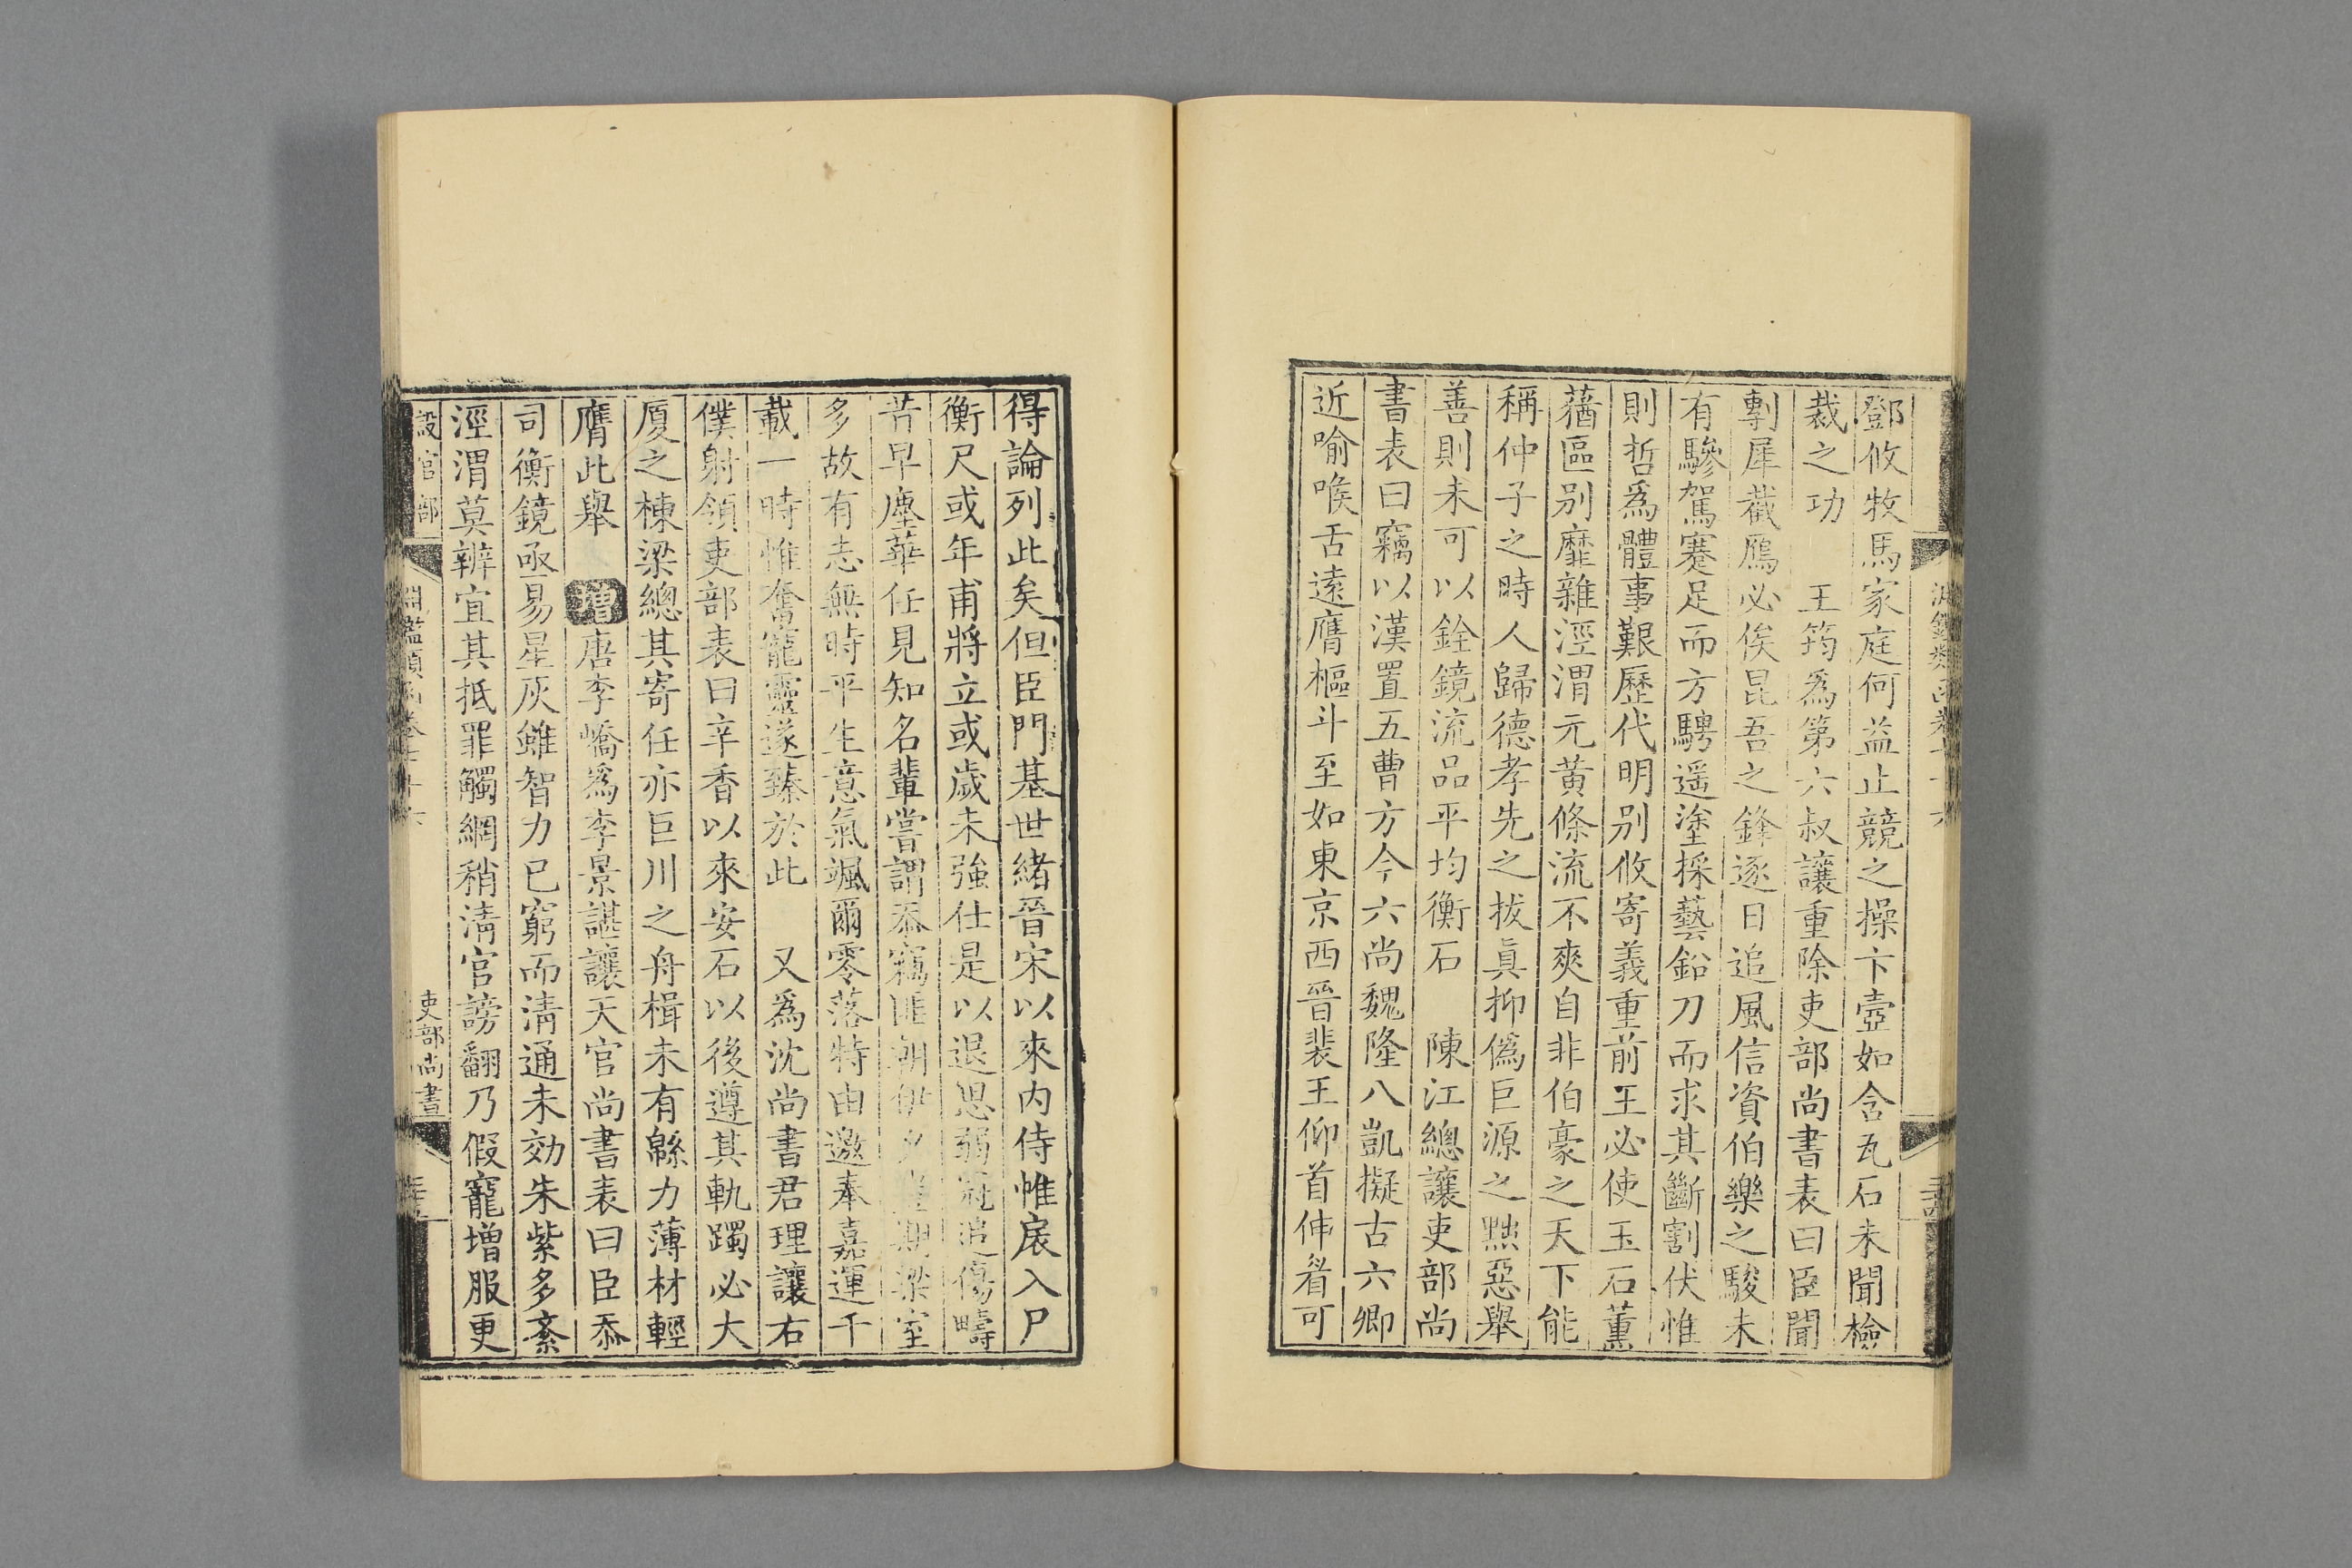 鄧攸牧馬家庭何益止競之操卞壼如含瓦石未聞檢
裁之功　王筠爲第六叔讓重除吏部尚書表曰臣聞
剸犀截鴈必俟昆吾之鋒逐日追風信資伯樂之駿未
有驂駕蹇足而方騁遥塗採藝鉛刀而求其斷割伏惟
則哲爲體事艱歷代明别攸寄義重前王必使玉石薰
蕕區别靡雜涇渭元黃條流不爽自非伯豪之天下能
稱仲子之時人歸德孝先之拔眞抑僞巨源之黜惡舉
善則未可以銓鏡流品平均衡石　陳江總讓吏部尚
書表曰竊以漢置五曹方今六尚魏隆八凱擬古六卿
近喻喉舌遠膺樞斗至如東京西晉裴王仰首伸眉可
得論列此矣但臣門基世緒晉宋以來内侍帷扆入尸
衡尺或年甫將立或歲未強仕是以退思弱冠追傷疇
昔早塵華任見知名輩嘗謂忝竊匪朝伊夕豈期梁室
多故有志無時平生意氣颯爾零落特由邀奉嘉運千
載一時惟奮寵靈遂臻於此　又爲沈尚書君理讓右
僕射領吏部表曰辛香以來安石以後遵其軌躅必大
厦之棟梁總其寄任亦巨川之舟楫未有緜力薄材輕
膺此舉　增唐李嶠爲李景諶讓天官尚書表曰臣忝
司衡鏡亟易星灰雖智力已窮而清通未効朱紫多紊
涇渭莫辨宜其抵罪觸網稍清官謗翻乃假寵增服更
設官部　淵鑑類函卷　吏部尚書